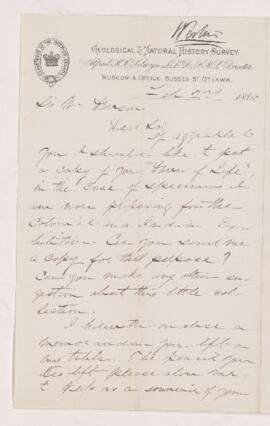 GEOLOGICAL & NATURAL HISTORY SURVEY.
Alfred R.C. Selwyn, L.L.D., F.R.S., Director
MUSEUM & OFFICE, SUSSEX ST OTTAWA.
Feb 1886
Sir Wm Dawson
Dear Sir
If agreable to
you I should like to put
a copy of your "Chain of Life",
in the case of specimens I
am now preparing for the
Colonial and Indian Ex-
hibition. Can you send me
a copy for that purpose?
Can you make any other sug-
gestion about this little col-
lection.
I herewith enclose a
memorandum you left on
my table. The pencil you
also left please allow me
to keep as a souvenir of your